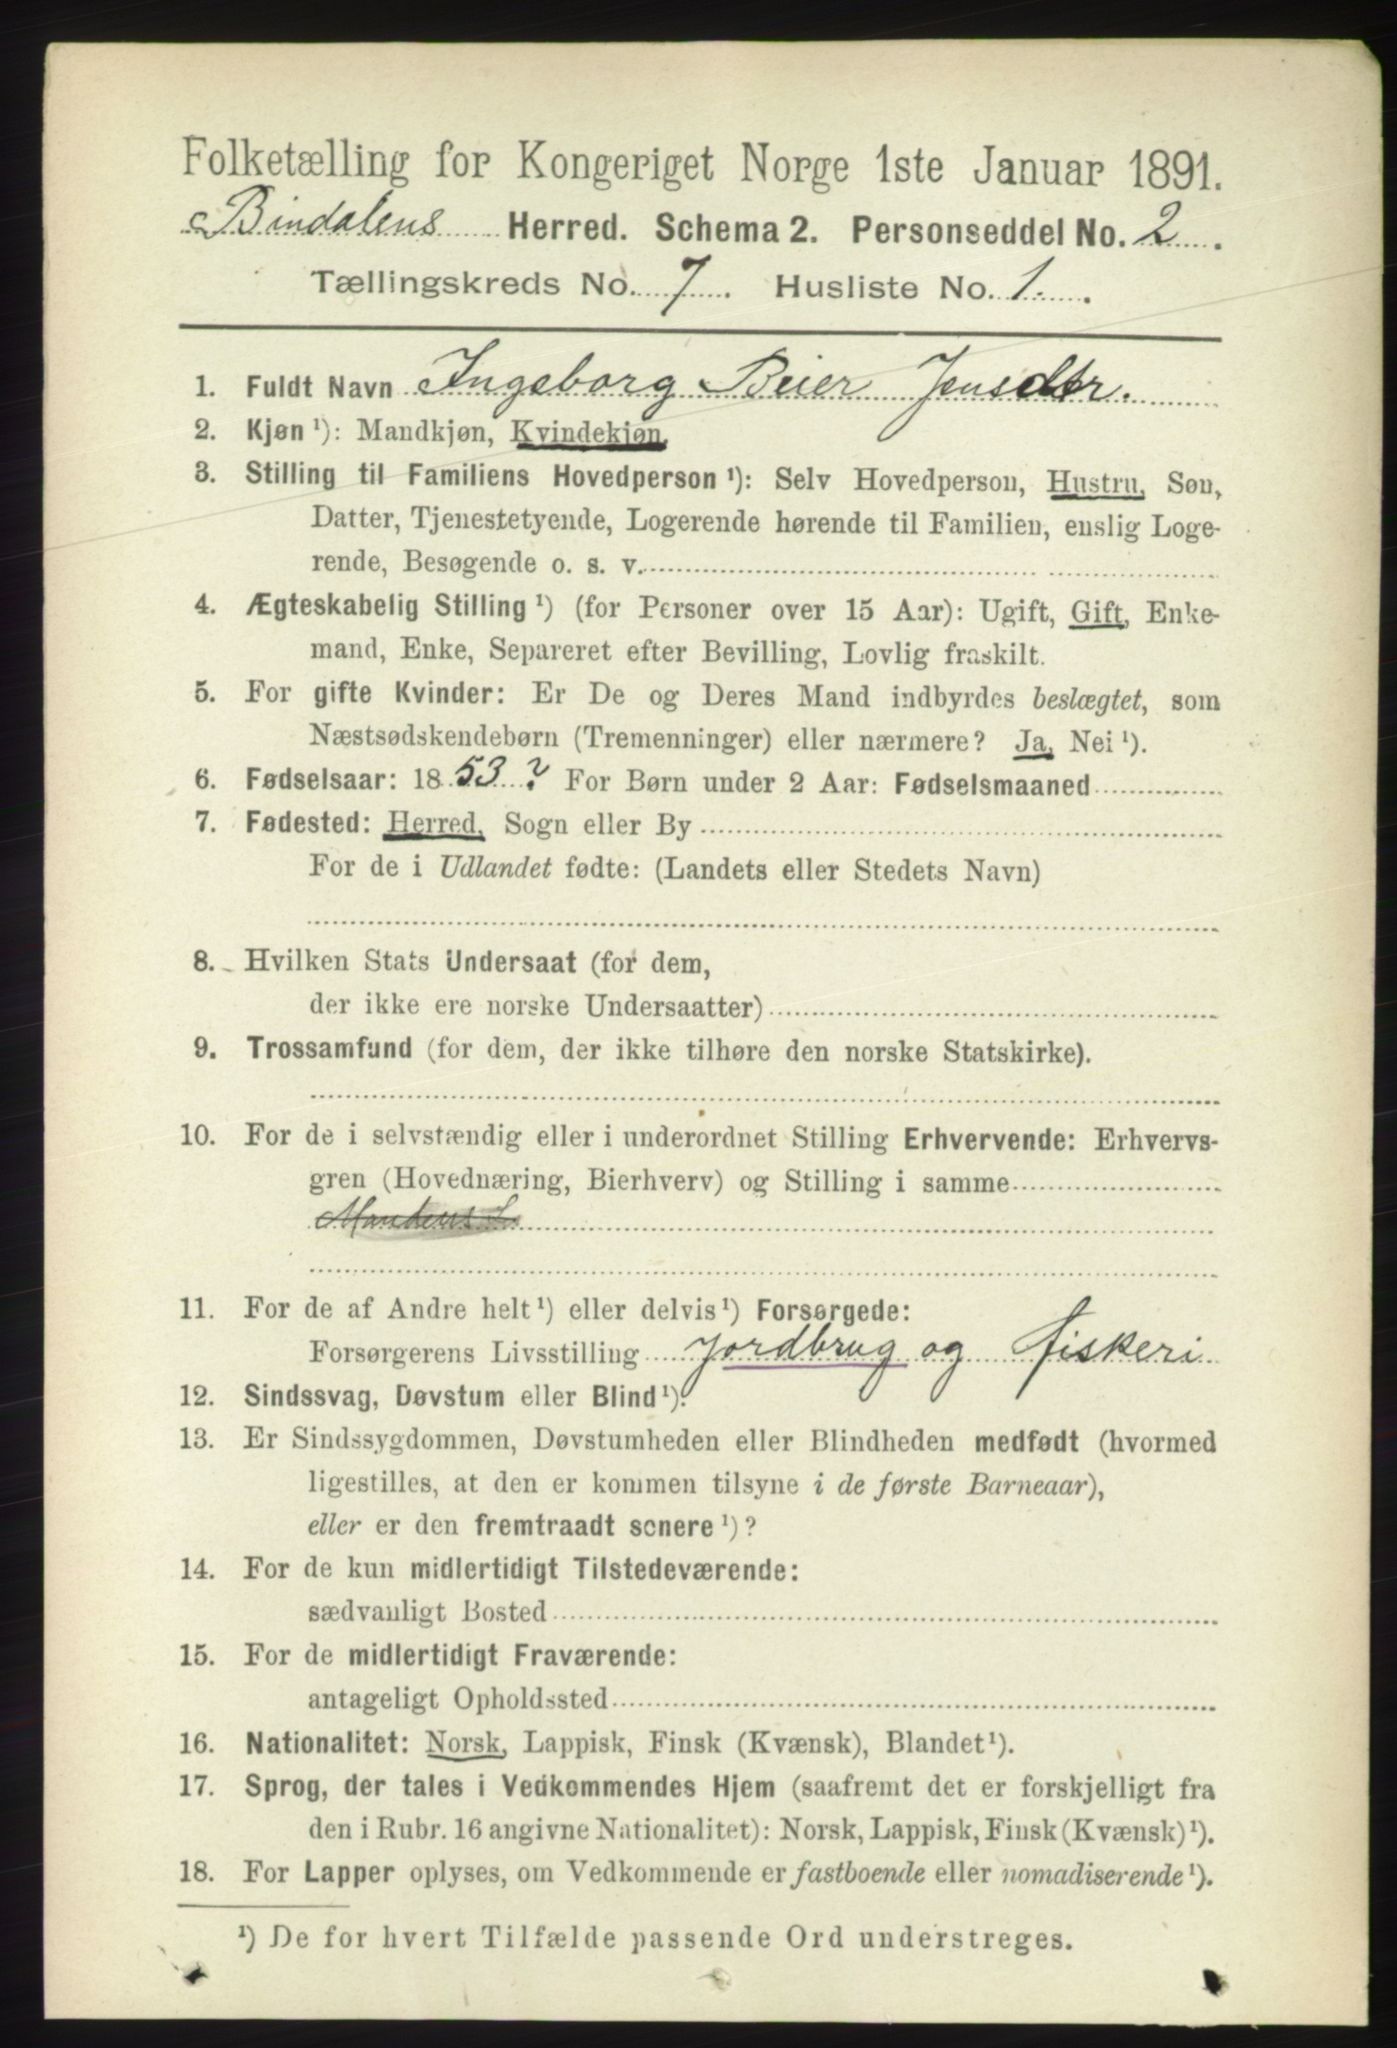 Folketælling for Kongeriget Norge 1ste Januar 1891.
Bindalens Herred. Schema 2. Personseddel No. 2.
Tællingskreds No. 7. Husliste No. 1.
1. Fuldt Navn Ingeborg Beier Jensdtr.
2. Kjøn ¹): Mandkjøn, Kvindekjøn.
3. Stilling til Familiens Hovedperson ¹): Selv Hovedperson, Hustru, Søn,
Datter, Tjenestetyende, Logerende hørende til Familien, enslig Loge-
rende, Besøgende o. s. v.
4. Ægteskabelig Stilling ¹) (for Personer over 15 Aar): Ugift, Gift, Enke-
mand, Enke, Separeret efter Bevilling, Lovlig fraskilt.
5. For gifte Kvinder: Er De og Deres Mand indbyrdes beslægtet, som
Næstsødskendebørn (Tremenninger) eller nærmere? Ja, Nei ¹).
6. Fødselsaar: 1853? For Børn under 2 Aar: Fødselsmaaned
7. Fødested: Herred, Sogn eller By
For de i Udlandet fødte: (Landets eller Stedets Navn)
8. Hvilken Stats Undersaat (for dem,
der ikke ere norske Undersaatter)
9. Trossamfund (for dem, der ikke tilhøre den norske Statskirke).
10. For de i selvstændig eller i underordnet Stilling Erhvervende: Erhvervs-
gren (Hovednæring, Bierhverv) og Stilling i samme
Mandens
11. For de af Andre helt ¹) eller delvis ¹) Forsørgede:
Forsørgerens Livsstilling Jordbrug og Fiskeri
12. Sindssvag, Døvstum eller Blind ¹).
13. Er Sindssygdommen, Døvstumheden eller Blindheden medfødt (hvormed
ligestilles, at den er kommen tilsyne i de første Barneaar),
eller er den fremtraadt senere ¹)?
14. For de kun midlertidigt Tilstedeværende:
sædvanligt Bosted
15. For de midlertidigt Fraværende:
antageligt Opholdssted
16. Nationalitet: Norsk, Lappisk, Finsk (Kvænsk), Blandet ¹).
17. Sprog, der tales i Vedkommendes Hjem (saafremt det er forskjelligt fra
den i Rubr. 16 angivne Nationalitet): Norsk, Lappisk, Finsk (Kvænsk) ¹).
18. For Lapper oplyses, om Vedkommende er fastboende eller nomadiserende ¹).
¹) De for hvert Tilfælde passende Ord understreges.